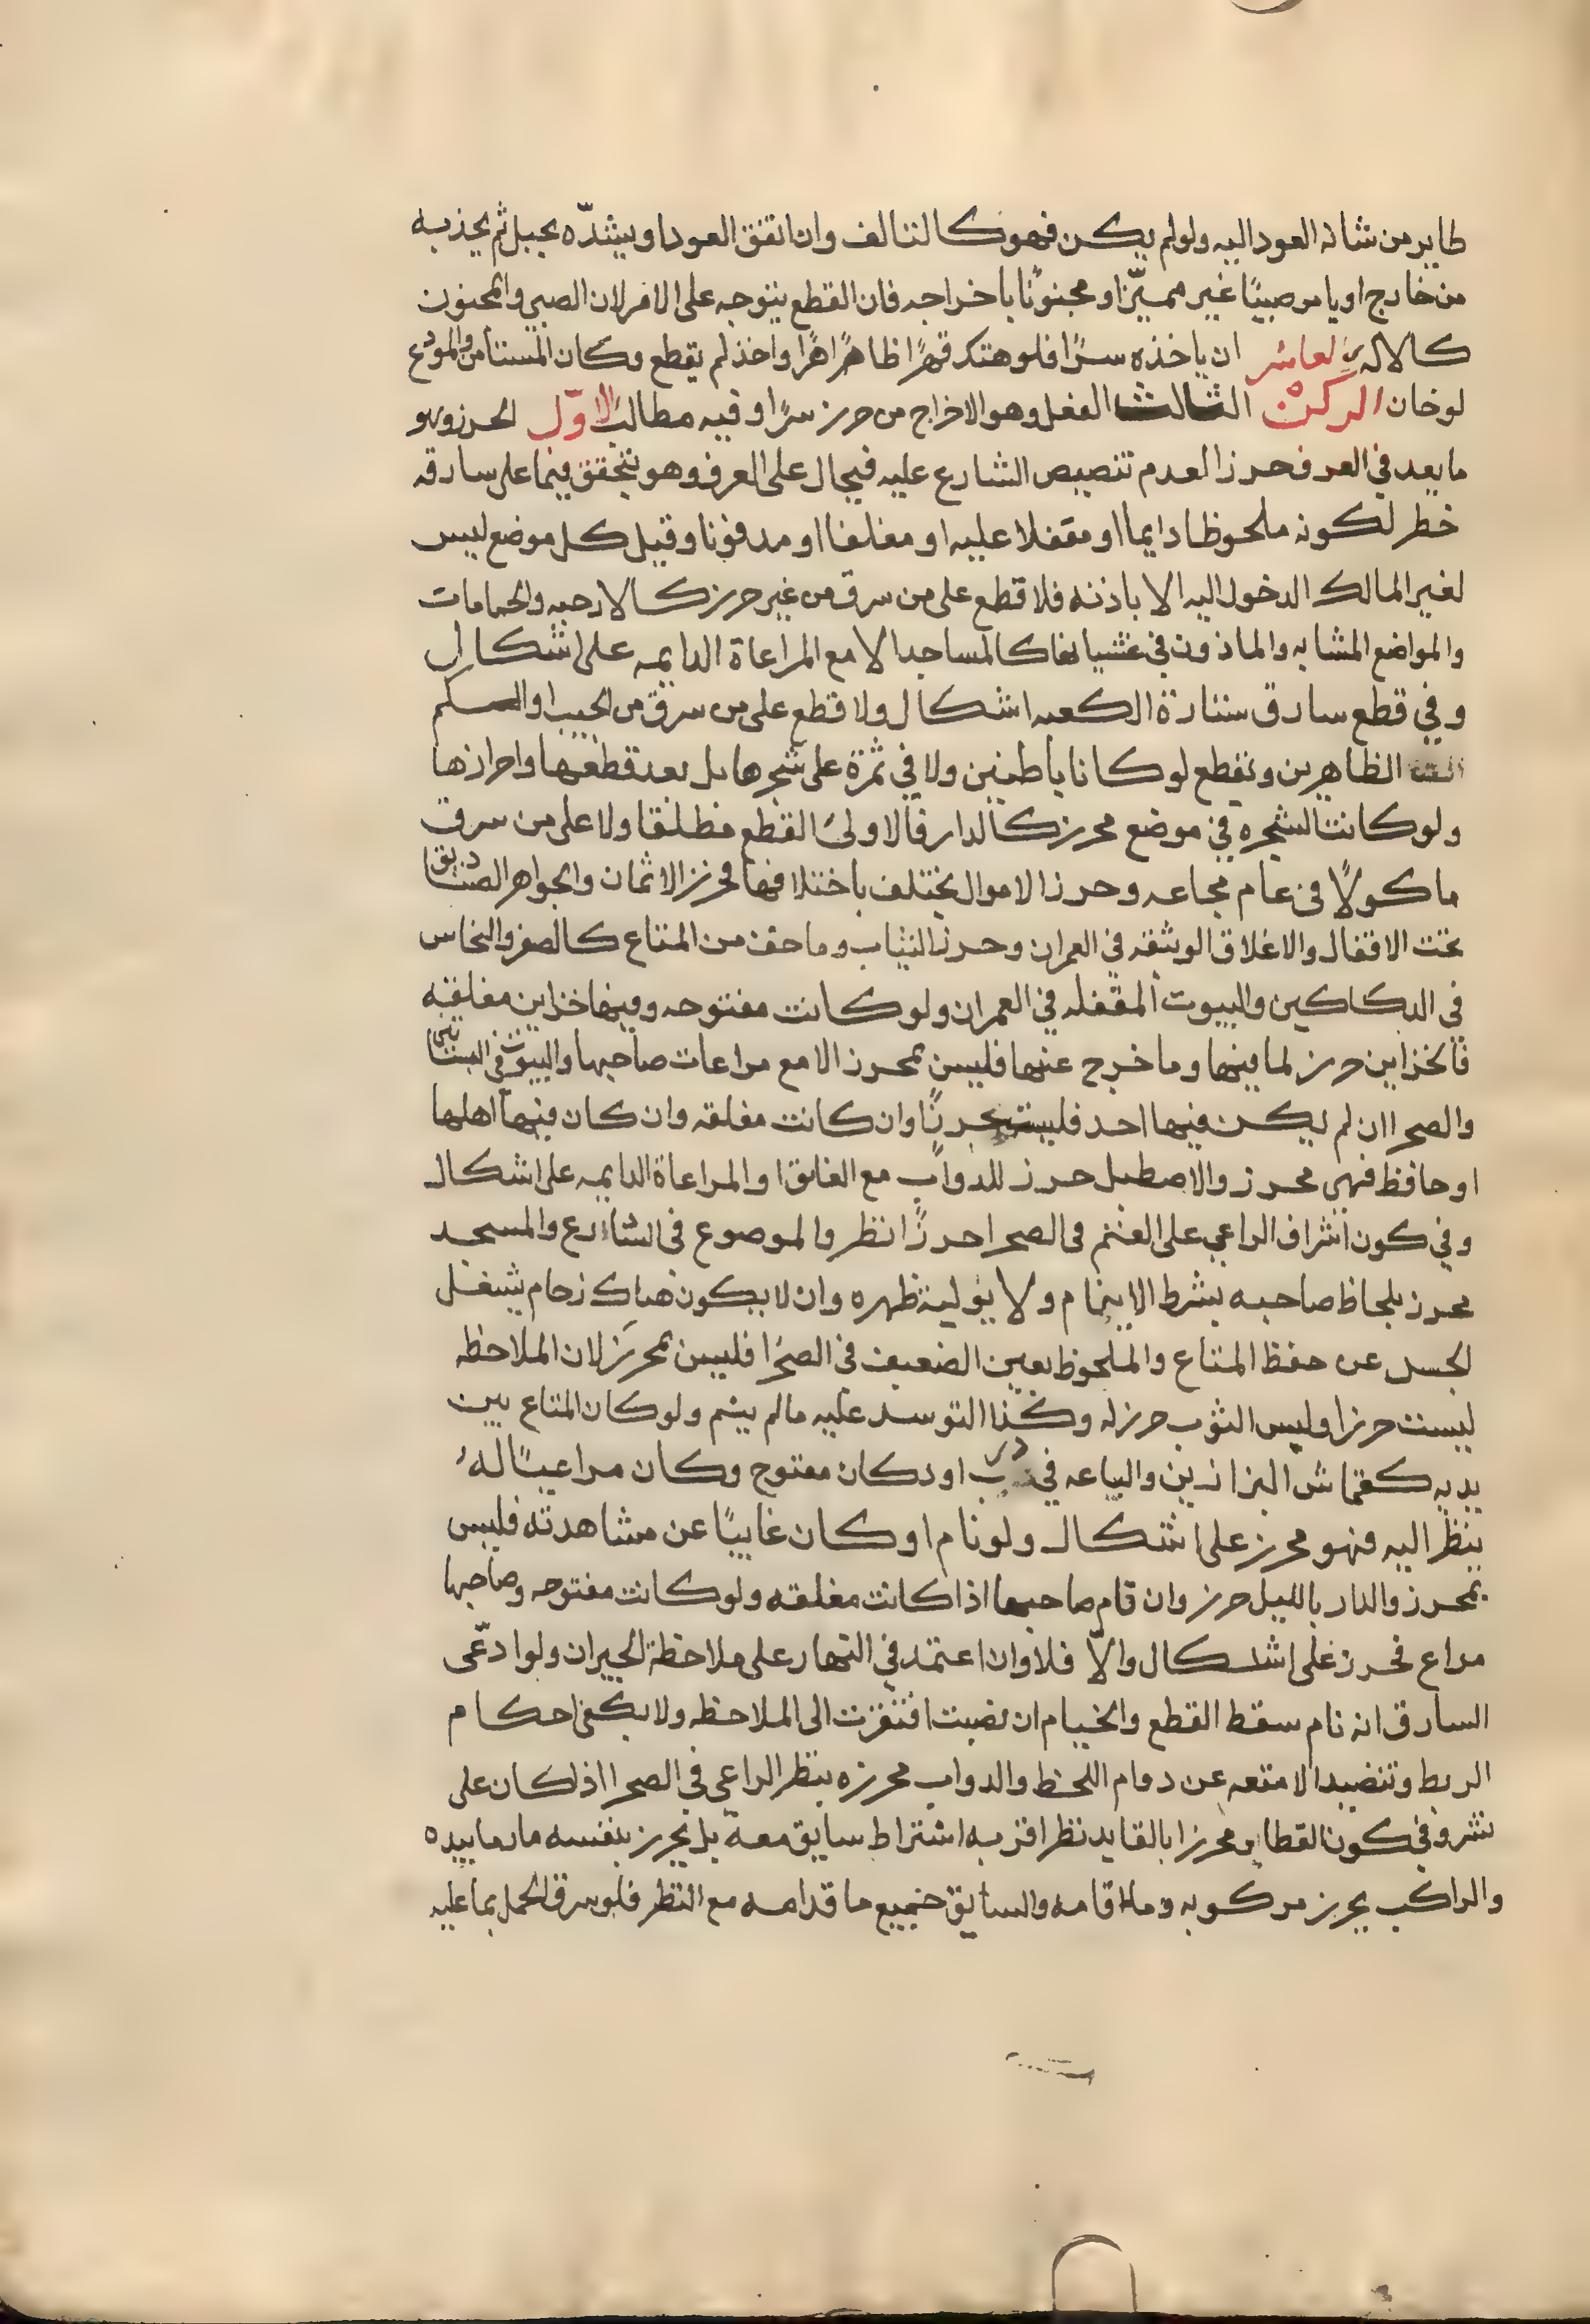 طاير من شانه العود اليه ولو لم يكن فهو كالتالف وان اتفق العود او يشدّه بحبل ثم يجذبه
من خارج او يامر صبيًا غير مميّز او مجنونًا باخراجه فان القطع يتوجه على الامر لان الصبي والمجنون
كالاله العاشر ان ياخذه سرًا فلو هتك قهرًا ظاهرًا واخذ لم يقطع وكان المستامن والمودع
لو خان الركن الثالث الفعل وهو الاخراج من حرز سرًا وفيه مطالب الاوّل الحرز وهو
ما يعد في العرف حرزا لعدم تنصيص الشارع عليه فيحال على العرف وهو يتحقق فيما على سارقه
خطر لكونه ملحوظا دايما او مقفلا عليه او مغلقا او مدفونا وقيل كل موضع ليس
لغير المالك الدخول اليه الا باذنه فلا قطع على من سرق من غير حرز كالارحيه والحمامات
والمواضع المشابه والماذون في غشيانها كالمساجد الا مع المراعاة الدايمه على اشكال
وفي قطع سارق ستارة الكعبه اشكال ولا قطع على من سرق من الجيب او الكم
الظاهرين ويقطع لو كانا باطنين ولا في ثمرة على شجرها بل بعد قطعها واحرازها
ولو كانت الشجره في موضع محرز كالدار فالاولى القطع مطلقا ولا على من سرق
ماكولًا في عام مجاعه وحرز الاموال يختلف باختلافها فحرز الاثمان والجواهر الصناديق
تحت الاقفال والاغلاق الوثيقه في العمران وحرز الثياب وما خف من المتاع كالصفر والنحاس
في الدكاكين والبيوت المقفله في العمران ولو كانت مفتوحه وفيها خزاين مغلقه
فالخزاين حرز لما فيها وما خرج عنها فليس بمحرز الا مع مراعات صاحبها والبيوت في البساتين
والصحرا ان لم يكن فيها احد فليست بحرزًا وان كانت مغلقه وان كان فيها اهلها
او حافظ فهي محرز والاصطبل حرز للدواب مع الغلق او المراعاة الدايمه على اشكال
وفي كون اشراف الراعي على الغنم في الصحرا حرزًا نظر والموضوع في الشارع والمسجد
محرز بلحاظ صاحبه بشرط الا ينام ولا يوليه ظهره وان لا يكون هناك زحام يشغل
الحس عن حفظ المتاع والملحوظ بعين الضعيف في الصحرا فليس بمحرز لان الملاحظه
ليست حرزا وليس الثوب حرز له وكذا التوسد عليه ما لم ينم ولو كان المتاع بين
يديه كقماش البزازين والباعه في درب او دكان مفتوح وكان مراعيًا له
ينظر اليه فهو محرز على اشكال ولو نام او كان غايبًا عن مشاهدته فليس
بمحرز والدار بالليل حرز وان قام صاحبها اذا كانت مغلقه ولو كانت مفتوحه وصاحبها
مراع فحرز على اشكال والّا فلا وان اعتمد في النهار على ملاحظة الجيران ولو ادّعى
السارق انه نام سقط القطع والخيام ان نصبت افتقرت الى الملاحظه ولا يكفي احكام
الربط وتنضيد الامتعه عن دوام اللحظ والدواب محرزه بنظر الراعي في الصحرا اذا كان على
نشر وفي كون القطار محرزا بالقايد نظر اقربه اشتراط سايق معه بل يحرز بنفسه ما بيده
والراكب يحرز مركوبه وما امامه والسايق جميع ما قدامه مع النظر فلو سرق الجمل بما عليه